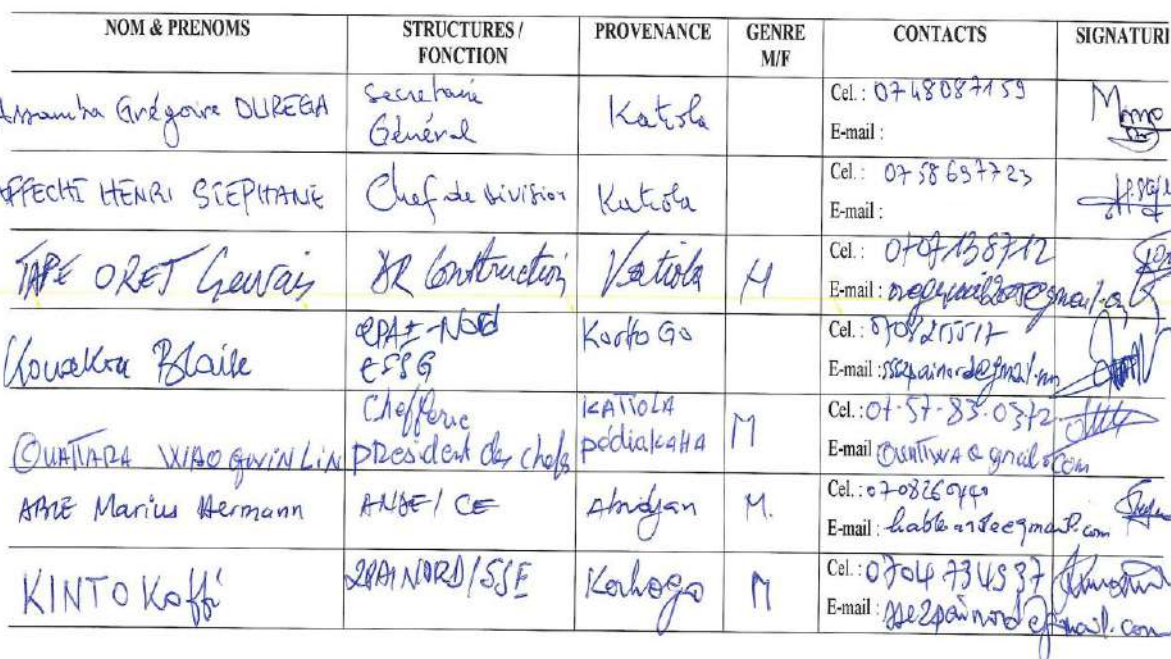 NOM & PRENOMS STRUCTURES / FONCTION PROVENANCE GENRE M/F CONTACTS SIGNATURE
Grégoire DUREGA Secretaire Général Katiola Cel. : 0748087159
E-mail :
AFFECHI HENRI STEPHANE Chef de division Katiola Cel. : 0758697723
E-mail :
TAPE ORET Gervais DR Construction Katiola M Cel. : 0707138712
E-mail :
Kouakou Blaise 2PAI-NORD ESSG Korhogo Cel. :
E-mail :
OUATTARA Chefferie président des chefs KATIOLA pédiakaHA M Cel. : 01-57-83-0372
E-mail
ABLE Marius Hermann ANDE / CE Abidjan M. Cel. :
E-mail :
KINTO Koffi 2PAI NORD / SSE Korhogo M Cel. : 0704734937
E-mail : sse2painord@gmail.com